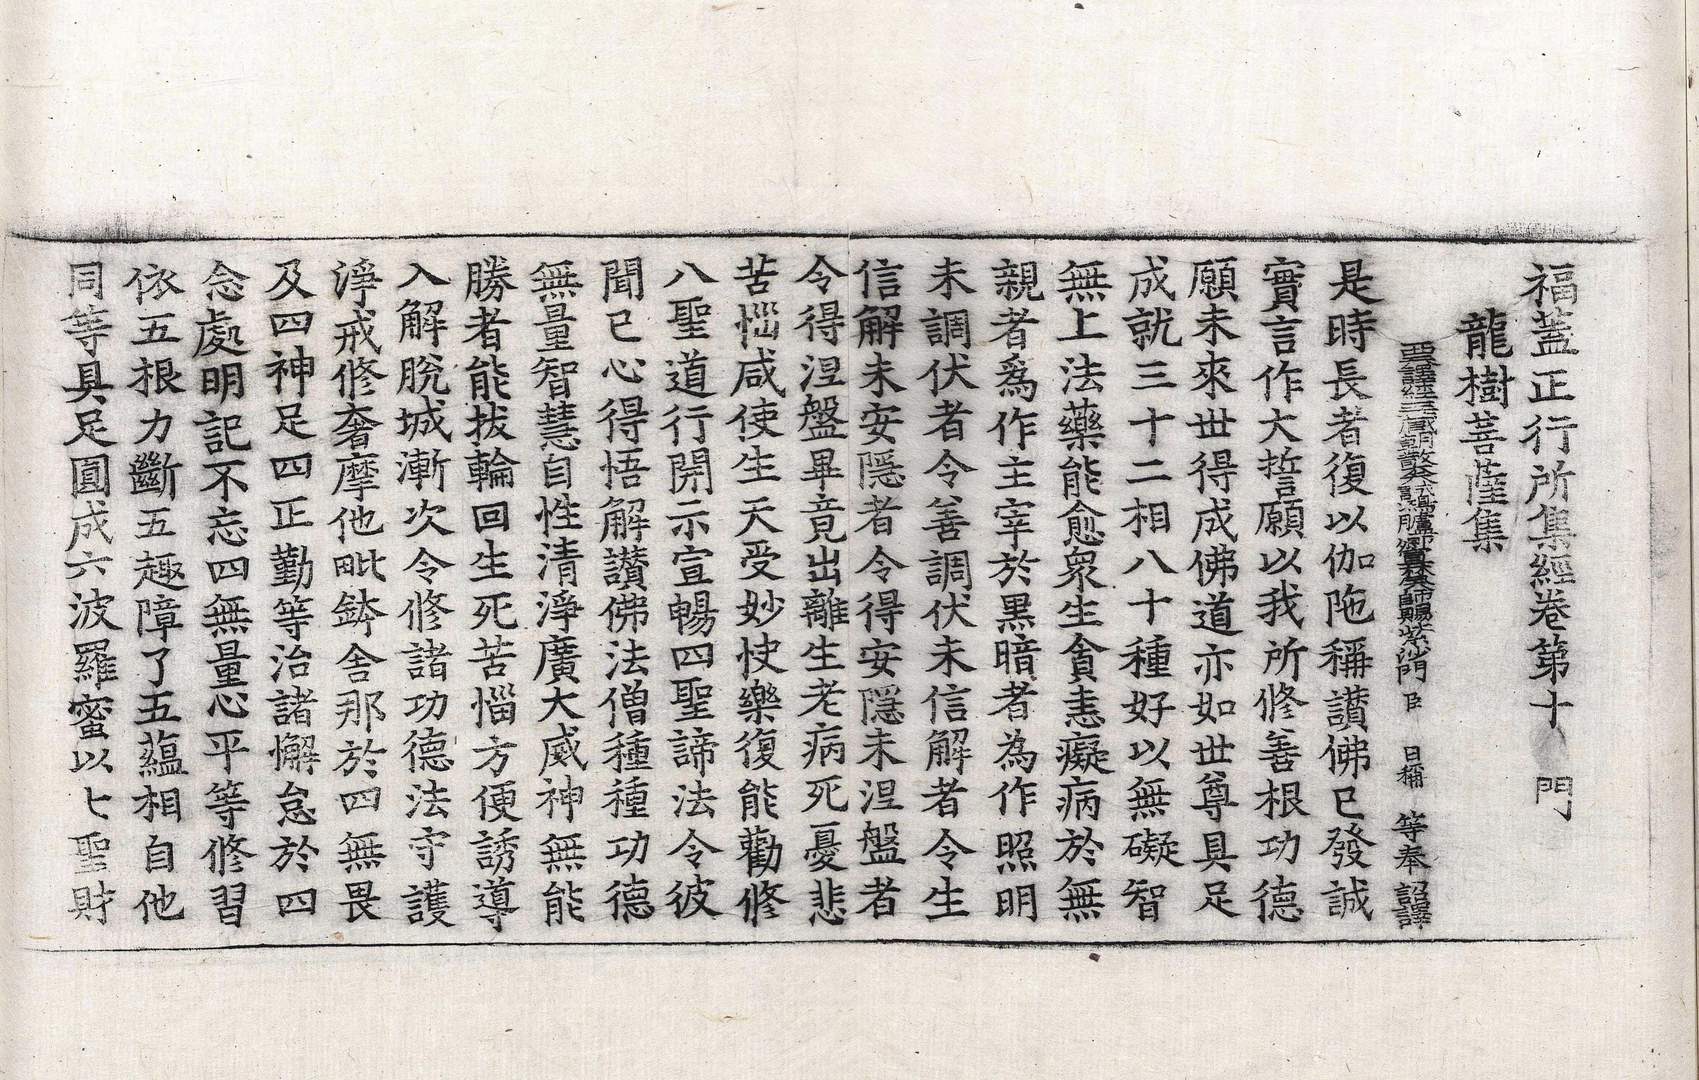 福蓋正行所集經卷第十　門
龍樹菩薩集
西天譯經三藏朝散大夫試鴻臚卿宣梵大師賜紫沙門臣日稱等奉詔譯
是時長者復以伽陁稱讃佛已發誠
實言作大誓願以我所修善根功德
願未來世得成佛道亦如世尊具足
成就三十二相八十種好以無礙智
無上法藥能愈衆生貪恚癡病於無
親者爲作主宰於黒暗者為作照明
未調伏者令善調伏未信解者令生
信解未安隱者令得安隱未涅盤者
令得涅盤畢竟出離生老病死憂悲
苦惱咸使生天受妙快樂復能勸修
八聖道行開示宣暢四聖諦法令彼
聞已心得悟解讃佛法僧種種功德
無量智慧自性清淨廣大威神無能
勝者能拔輪回生死苦惱方便誘導
入解脫城漸次令修諸功德法守護
淨戒修奢摩他毗鉢舍那於四無畏
及四神足四正勤等治諸懈怠於四
念處明記不忘四無量心平等修習
依五根力斷五趣障了五蘊相自他
同等具足圓成六波羅蜜以七聖財